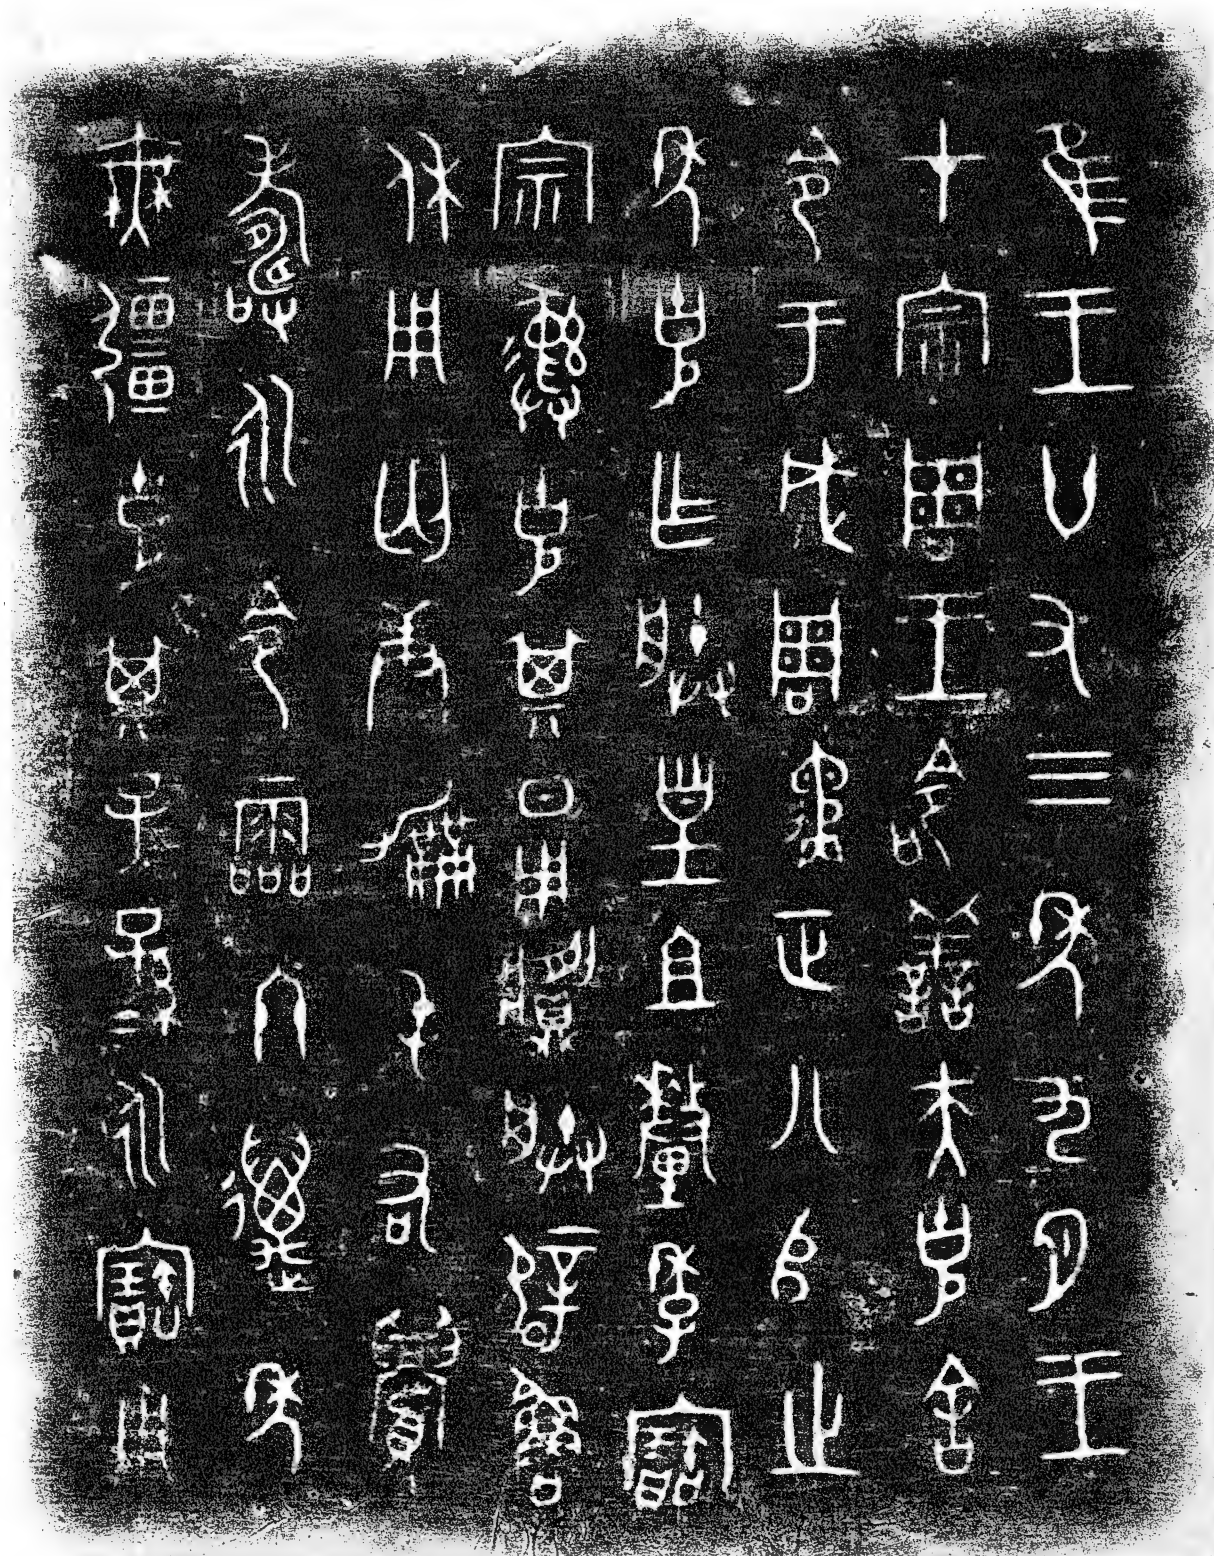 隹王廿又三年九月王
才宗周王命善夫克舍
令于成周遹正八𠂤之
年克乍朕皇且釐季寶
宗彝克其日用𩰫朕辟魯
休用匄康勵屯右眉
壽永令霝冬萬年
無疆克其子=孫=永寶用